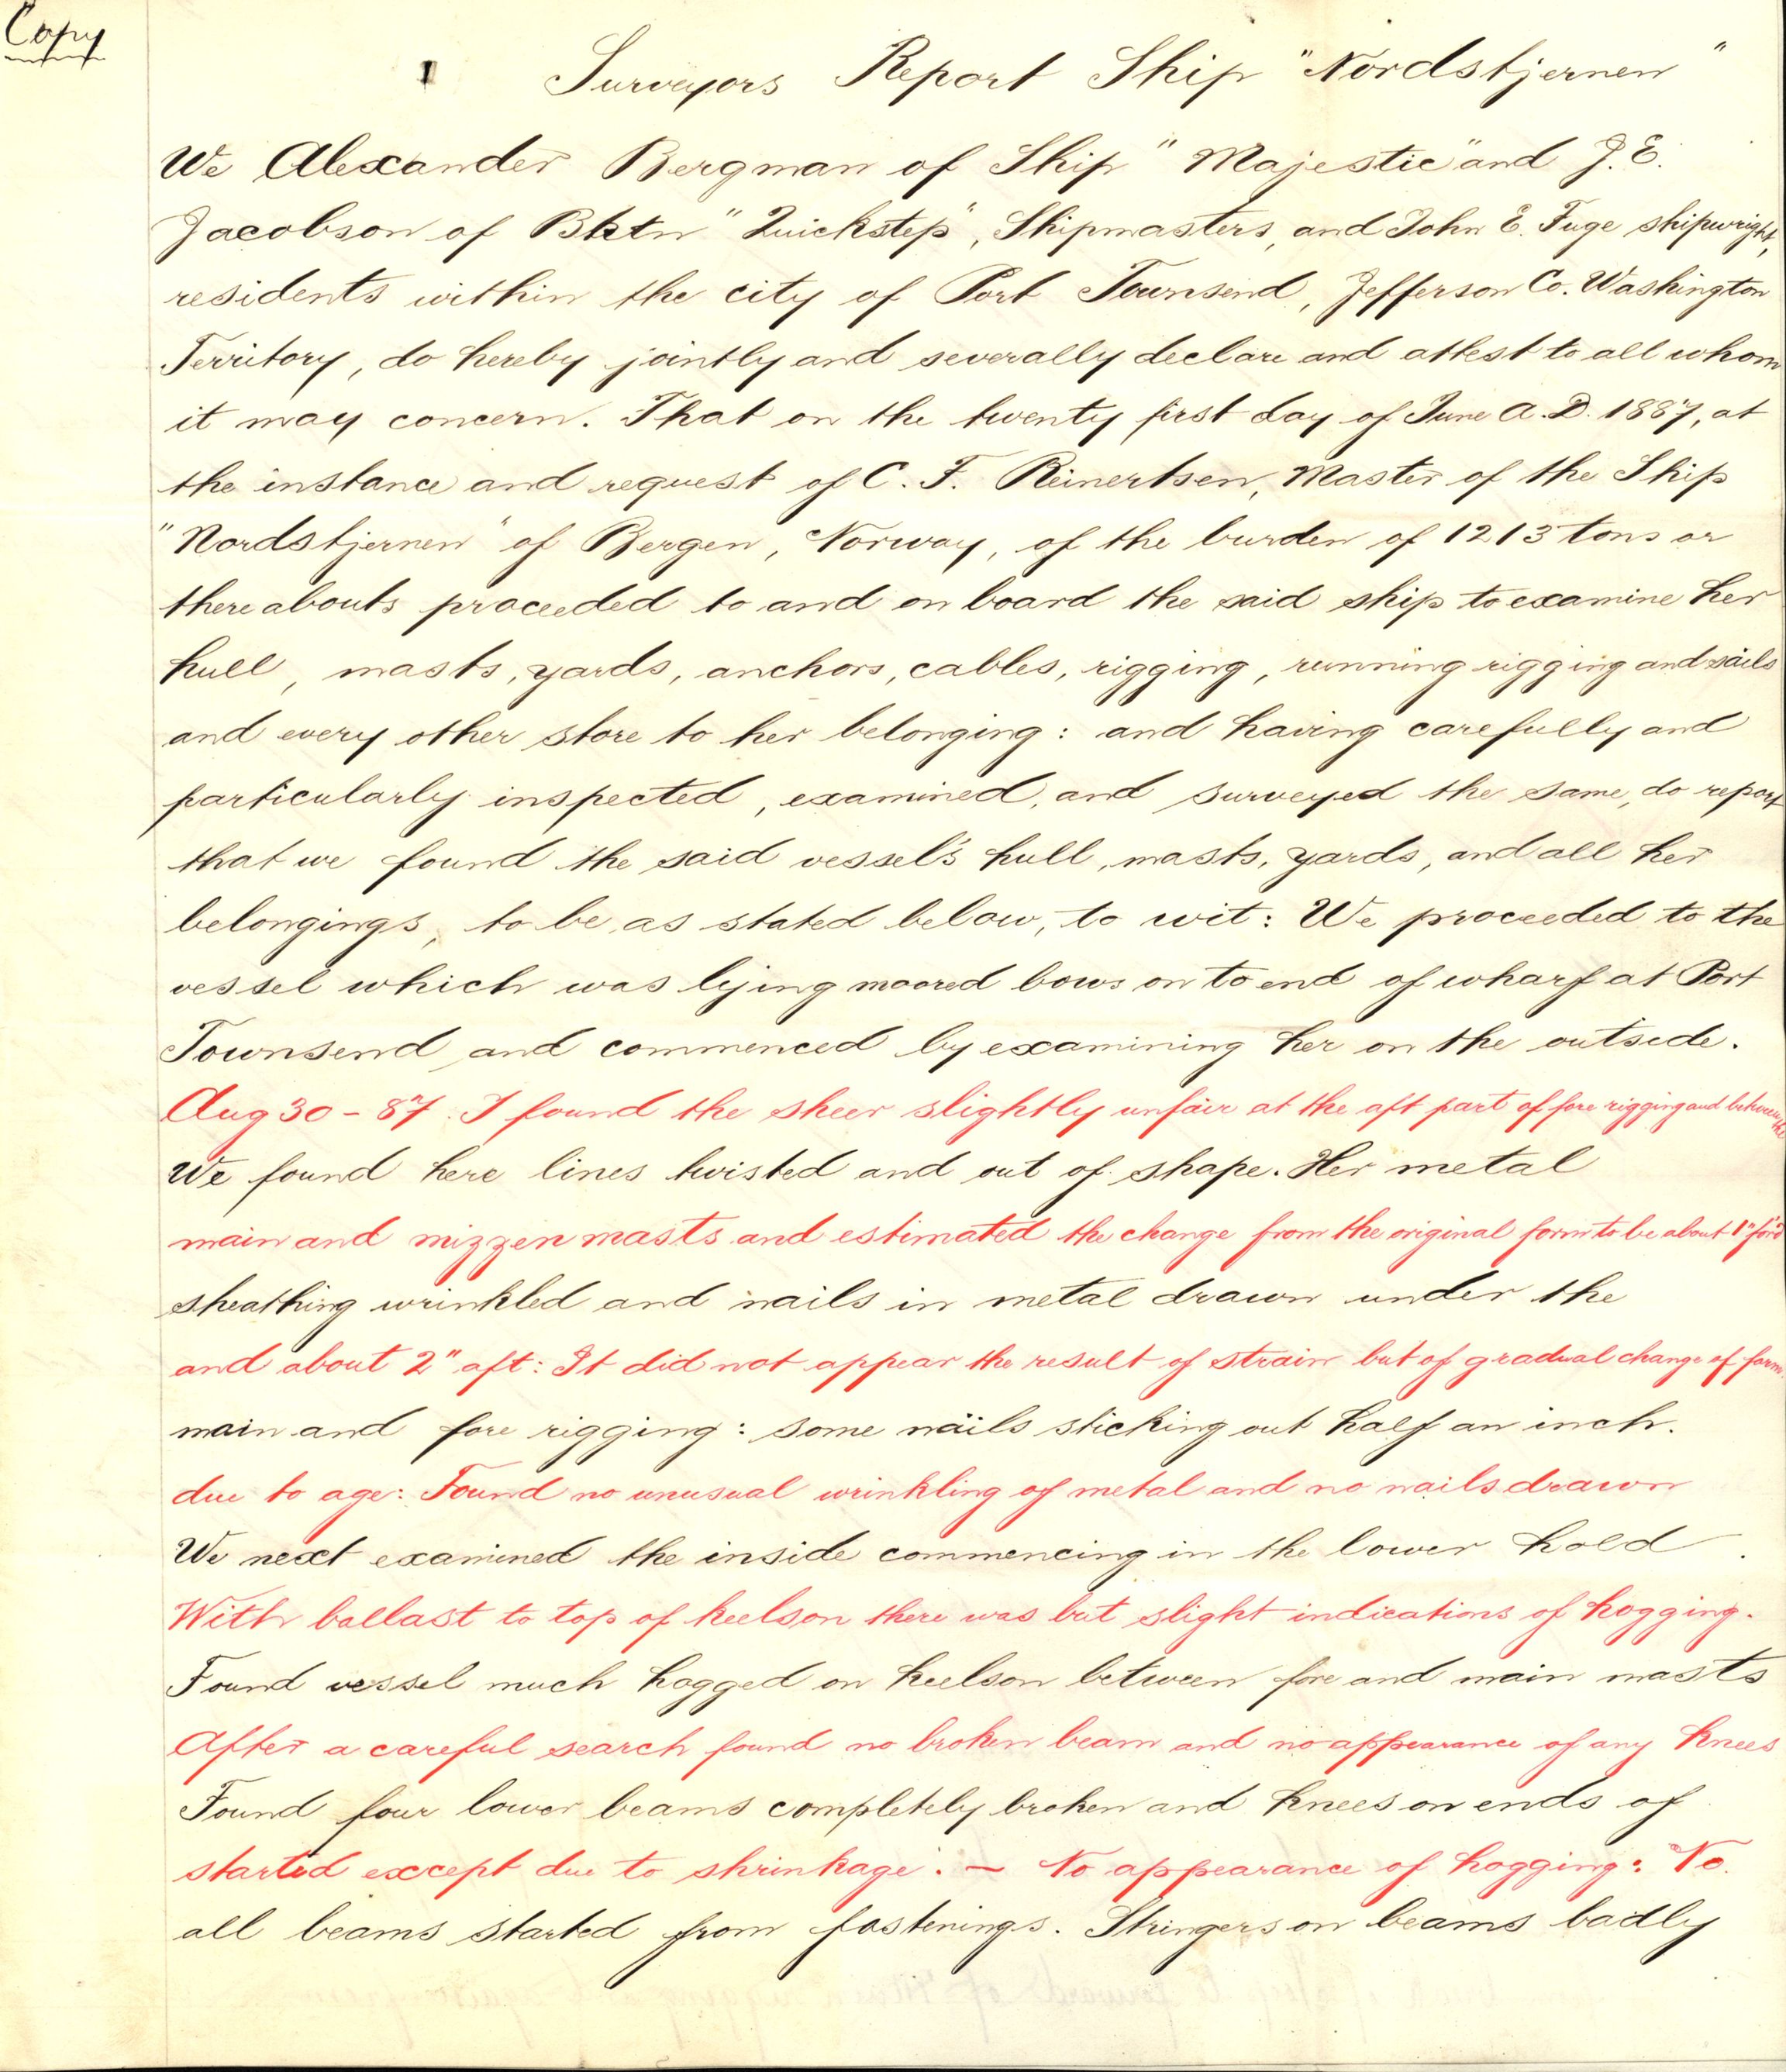 Copy
Surveyors Report Ship "Nordstjernen"
We Alexander Bergman of Ship "Majestic" and J. E.
Jacobson of Bktn "Quickstep", Shipmasters, and John E. Fuge shipwright,
residents within the city of Port Townsend, Jefferson Co. Washington
Territory, do hereby jointly and severally declare and attest to all whom
it may concern. That on the twenty first day of June A.D. 1887, at
the instance and request of C. F. Reinertsen, Master of the Ship
"Nordstjernen" of Bergen, Norway, of the burden of 1213 tons or
there abouts proceeded to and on board the said ship to examine her
hull, masts, yards, anchors, cables, rigging, running rigging and sails
and every other store to her belonging: and having carefully and
particularly inspected, examined, and surveyed the same, do report
that we found the said vessel's hull, masts, yards, and all her
belongings, to be as stated below, to wit: We proceeded to the
vessel which was lying moored bows on to end of wharf at Port
Townsend and commenced by examining her on the outside.
Aug 30 - 87. I found the sheer slightly unfair at the aft part of fore rigging and between the
We found here lines twisted and out of shape. Her metal
main and mizzen masts and estimated the change from the original form to be about 1" for'd
sheathing wrinkled and nails in metal drawn under the
and about 2" aft: It did not appear the result of strain but of gradual change of form
main and fore rigging: some nails sticking out half an inch.
due to age: Found no unusual wrinkling of metal and no nails drawn
We next examined the inside commencing in the lower hold.
With ballast to top of keelson there was but slight indications of hogging.
Found vessel much hogged on keelson between fore and main masts
After a careful search found no broken beam and no appearance of any knees
Found four lower beams completely broken and knees on ends of
started except due to shrinkage. — No appearance of hogging: No
all beams started from fastenings. Stringers on beams badly